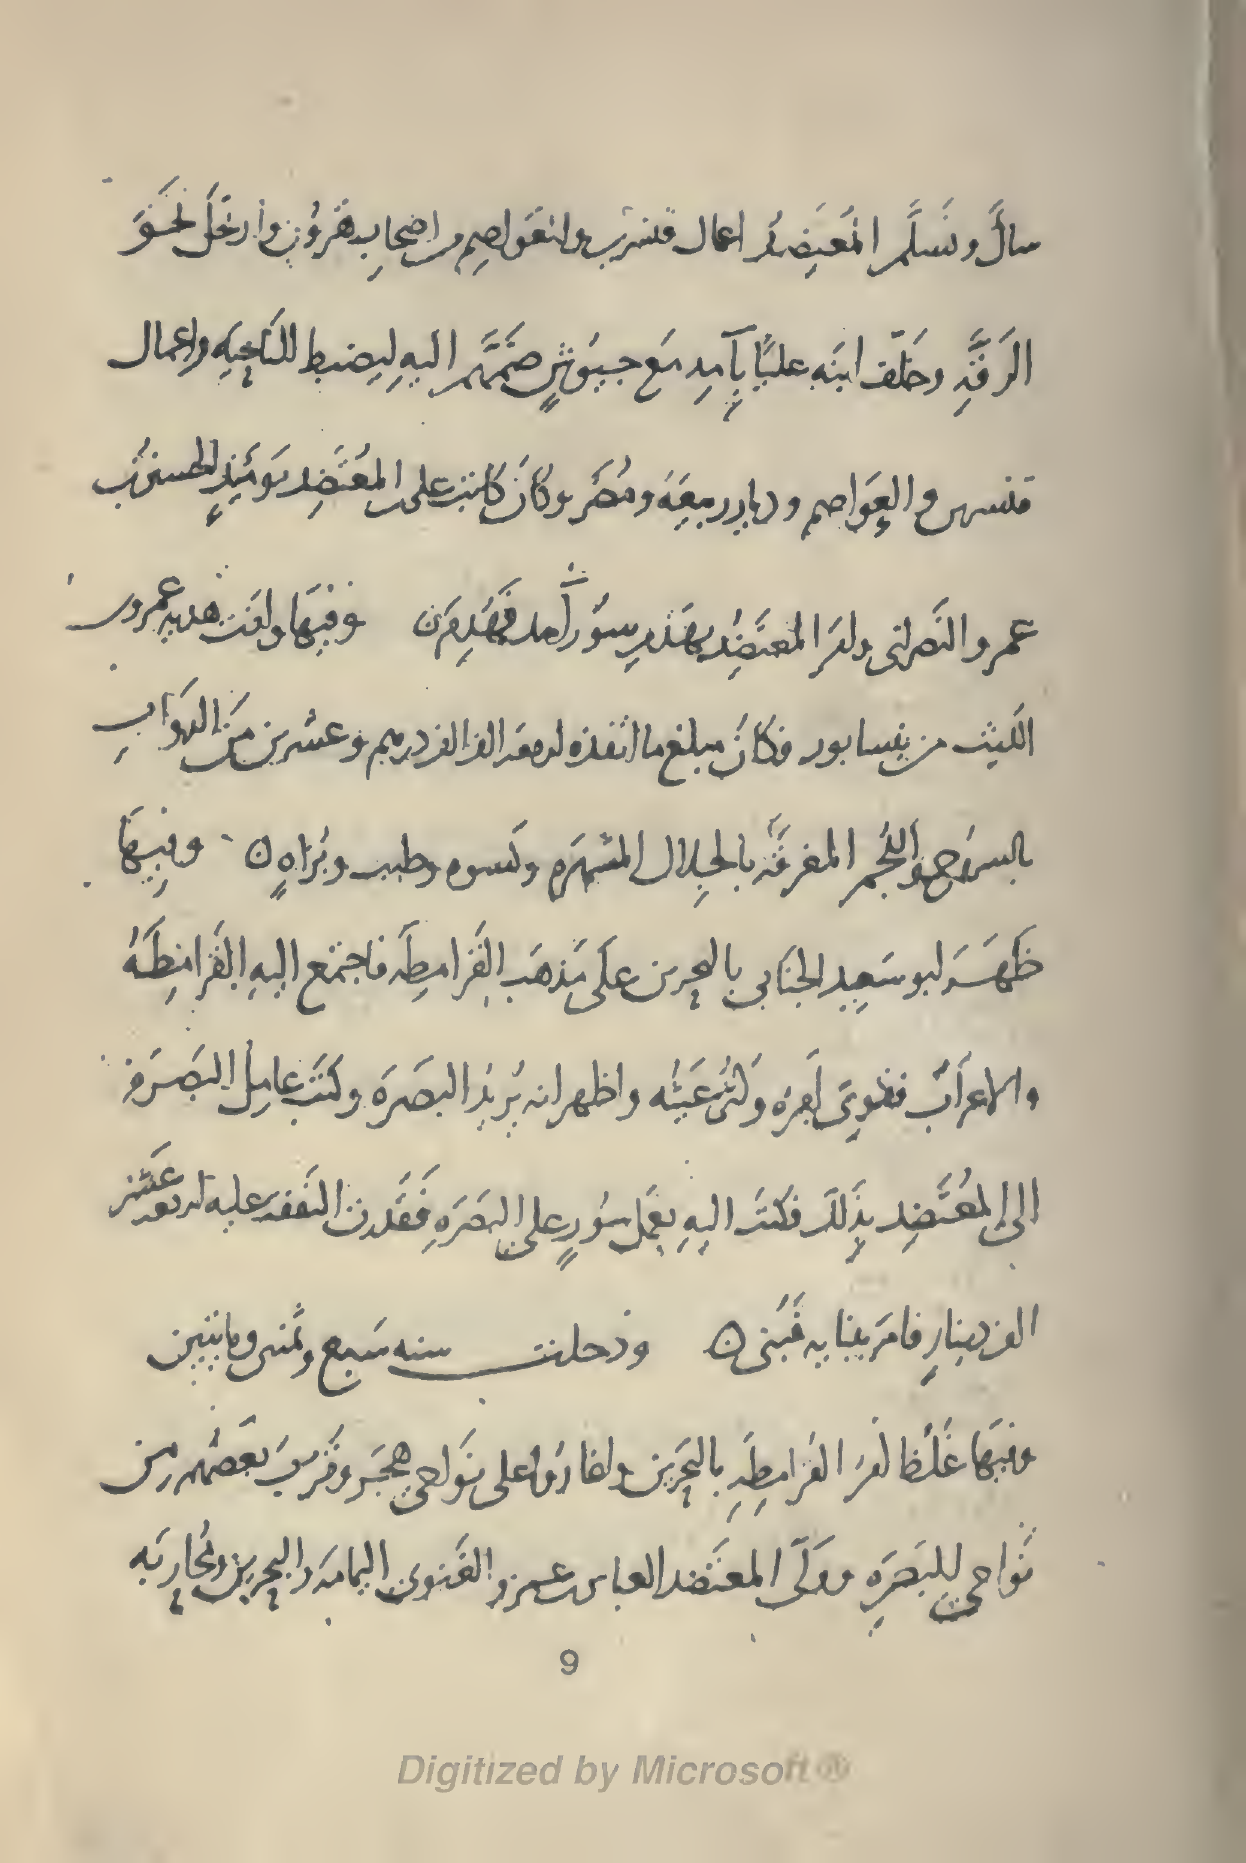 سأل وتسلّم المُعتَضِدُ اعمال قنسرين والعَواصِم من اصحابِ هَرُونَ وارتحَلَ نحَوَ
الرَقَّةِ وخَلّف ابنَه عليًّا بِآمِد مَع جيُوشٍ ضَمَّهم اليهِ لِيضبط النَاحِيَه واعمال
قنسرين والعَوَاصم وديار ربيعَه ومُضَر وكانَ كاتبَ على المعُتَضِد يَومَئِذٍ الحسينُ بن
عمرو النَصراني وامَر المعتَضِدُ بهَدمِ سُورِ آمد فَهُدِمَ ن وفيهَا وافَت هديه عمرو بن
الليث من نيسابور فكانَ مبلغ ما انفذه اربعه الف الف درهم وعشرين مَن الدَوَابِ
بالسروج واللُجُم المغرقَه بالحِلال المشهره وكسوه وطيب وبُزاهٍ ن وفيهَا
ظَهَرَ ابو سَعِيد الجنَابي بالبحرين علَى مَذهَب القَرامِطَه فاجتَمَع اليهِ القَرامِطَهُ
والاعرَابُ فقَوِىَ اَمرُه وكثُر عَيثُه واظهر انه يُريدُ البَصَره وكتَبَ عامِل البَصَرَهِ
الى المُعتَضِد بذَلكَ فكتَبَ اليهِ بعَمَل سُورٍ على البَصَرَهِ فَقُدرت النَفَقَه عليه اربعه عَشَر
الف دينارٍ فامَر ببنايه فَبُنى ن ودخلت سنه سَبع وثمنين ومايتين
وفيهَا غَلُظ امَر القَرامِطَهِ بالبَحَرَين واغارُوا على نَواحِي هَجَر وقَرُبَ بَعَضُهم من
نَواحي البَصَرَه وولَّى المعتَضد العباس بن عمرو الغَنوى اليمامَه والبحرين ومُحَاربَه
9
Digitized by Microsoft®